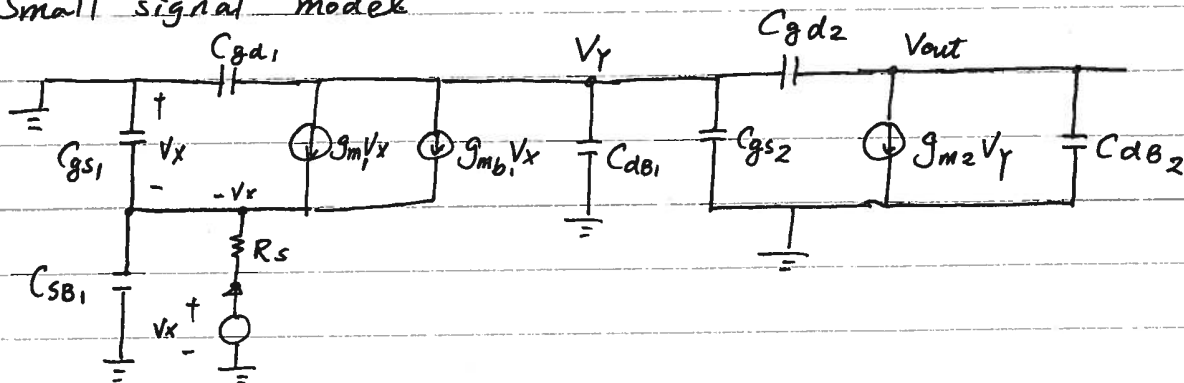 Small signal model
Cgd1
Vy
Cgd2
Vout
+
Cgs1
Vx
-
gm1Vx
gmb1Vx
CdB1
Cgs2
gm2Vy
CdB2
-Vx
Rs
CSB1
Vx
+
-